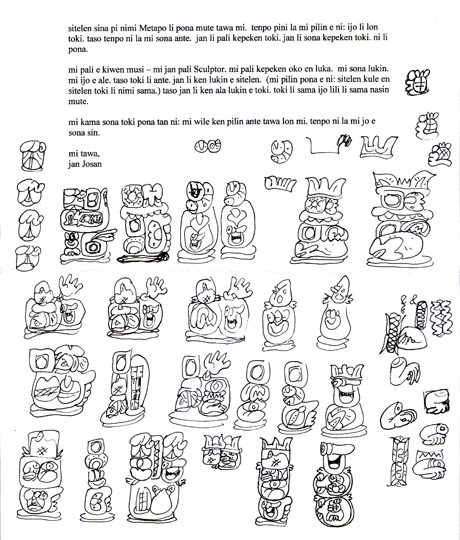 sitelen sina pi nimi Metapo li pona mute tawa mi.  tempo pini la mi pilin e ni: ijo li lon
toki. taso tenpo ni la mi sona ante.  jan li pali kepeken toki. jan li sona kepeken toki. ni li
pona.
mi pali e kiwen musi – mi jan pali Sculptor. mi pali kepeken oko en luka.  mi sona lukin.
mi ijo e ale.  taso toki li ante.  jan li ken lukin e sitelen.  (mi pilin pona e ni: sitelen kule en
sitelen toki li nimi sama.) taso jan li ken ala lukin e toki. toki li sama ijo lili li sama nasin
mute.
mi kama sona toki pona tan ni: mi wile ken pilin ante tawa lon mi. tenpo ni la mi jo e
sona sin.
mi tawa,
jan Josan